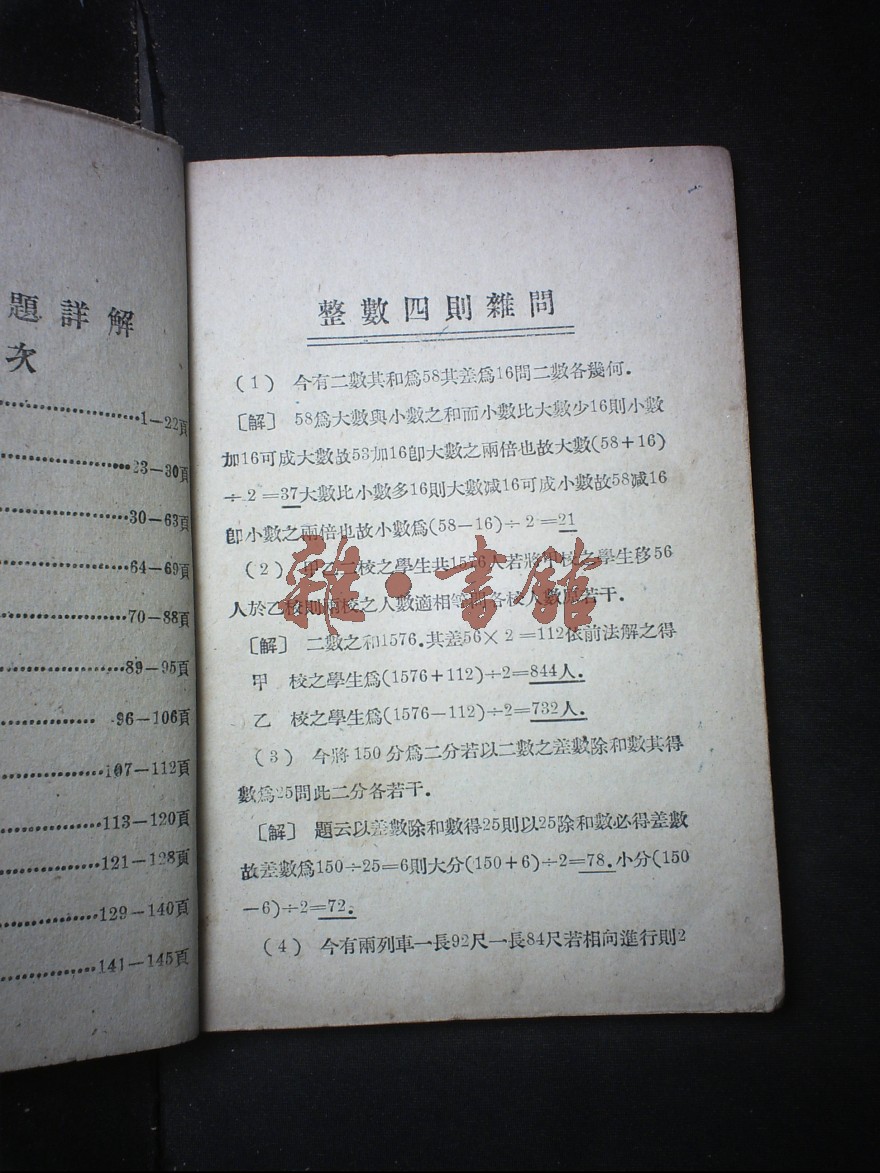 題詳解
次
1—22頁
23—30頁
30—63頁
64—69頁
70—88頁
89—95頁
96—106頁
107—112頁
113—120頁
121—128頁
129—140頁
141—145頁
整數四則雜問
(1) 今有二數其和爲58其差爲16問二數各幾何.
[解] 58爲大數與小數之和而小數比大數少16則小數
加16可成大數故53加16卽大數之兩倍也故大數(58+16)
÷2=37大數比小數多16則大數减16可成小數故58减16
卽小數之兩倍也故小數爲(58—16)÷2=21
(2) 甲乙二校之學生共1576人若將甲校之學生移56
人於乙校則兩校之人數適相等問各校人數原若干.
[解] 二數之和1576.其差56×2=112依前法解之得
甲 校之學生爲(1576+112)÷2=844人.
乙 校之學生爲(1576—112)÷2=732人.
(3) 今將150分爲二分若以二數之差數除和數其得
數爲25問此二分各若干.
[解] 題云以差數除和數得25則以25除和數必得差數
故差數爲150÷25=6則大分(150+6)÷2=78.小分(150
—6)÷2=72.
(4) 今有兩列車一長92尺一長84尺若相向進行則2
雜·書館